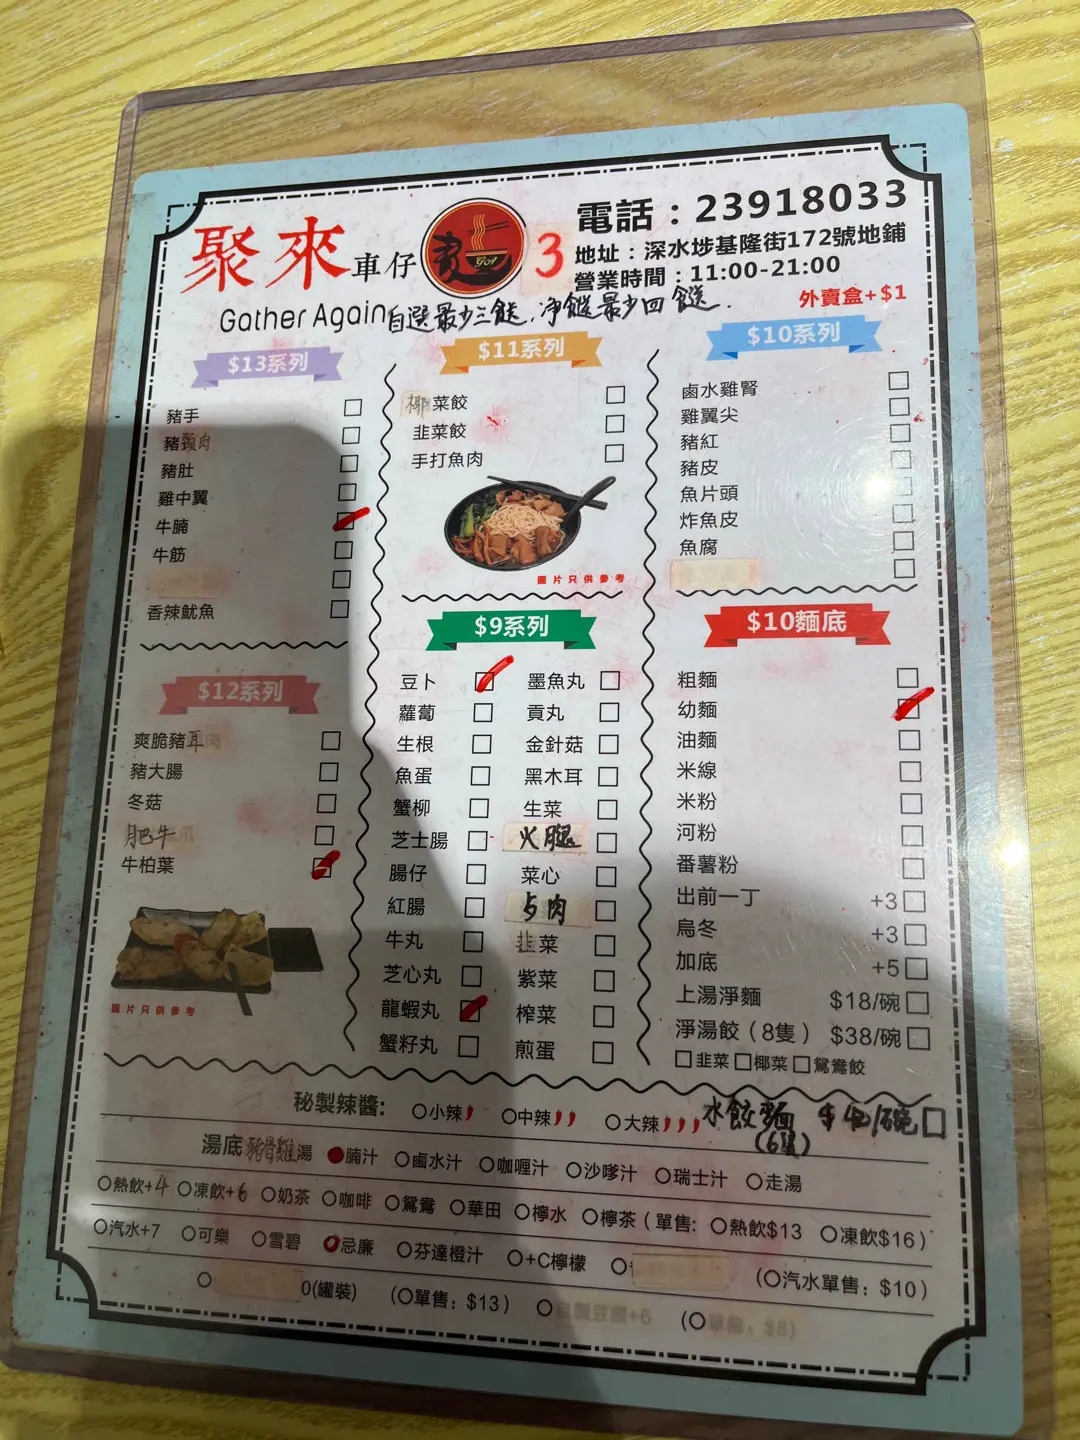 聚來車仔
Gather Again
3
電話：23918033
地址：深水埗基隆街172號地鋪
營業時間：11:00-21:00
外賣盒+$1
自選最少三餸，淨餸最少四餸．
$13系列
豬手
豬頸肉
豬肚
雞中翼
牛腩
牛筋
香辣魷魚
$12系列
爽脆豬耳
豬大腸
冬菇
肥牛
牛柏葉
圖片只供參考
$11系列
椰菜餃
韭菜餃
手打魚肉
圖片只供參考
$9系列
豆卜
蘿蔔
生根
魚蛋
蟹柳
芝士腸
腸仔
紅腸
牛丸
芝心丸
龍蝦丸
蟹籽丸
墨魚丸
貢丸
金針菇
黑木耳
生菜
火腿
菜心
韭菜
紫菜
榨菜
煎蛋
$10系列
鹵水雞腎
雞翼尖
豬紅
豬皮
魚片頭
炸魚皮
魚腐
$10麵底
粗麵
幼麵
油麵
米線
米粉
河粉
番薯粉
出前一丁 +3
烏冬 +3
加底 +5
上湯淨麵 $18/碗
淨湯餃（8隻） $38/碗
韭菜 椰菜 鴛鴦餃
秘製辣醬: 小辣 中辣 大辣
水餃麵 /碗
(6隻)
湯底 豬骨雞湯 腩汁 鹵水汁 咖喱汁 沙嗲汁 瑞士汁 走湯
熱飲+4 凍飲+6 奶茶 咖啡 鴛鴦 華田 檸水 檸茶（單售: 熱飲$13 凍飲$16）
汽水+7 可樂 雪碧 忌廉 芬達橙汁 +C檸檬 （汽水單售：$10）
0(罐裝) (單售：$13)
+6